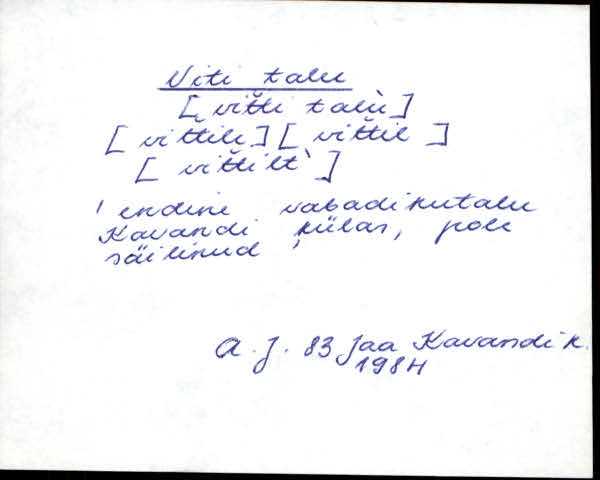 Viti talu
[vit̆ti talù]
[vit̆tile] [vit̆til]
[vit̆tilt`]
' endine vabadikutalu
Kavandi külas, pole
säilinud '
A. J. 83 Jaa Kavandi k.
1984